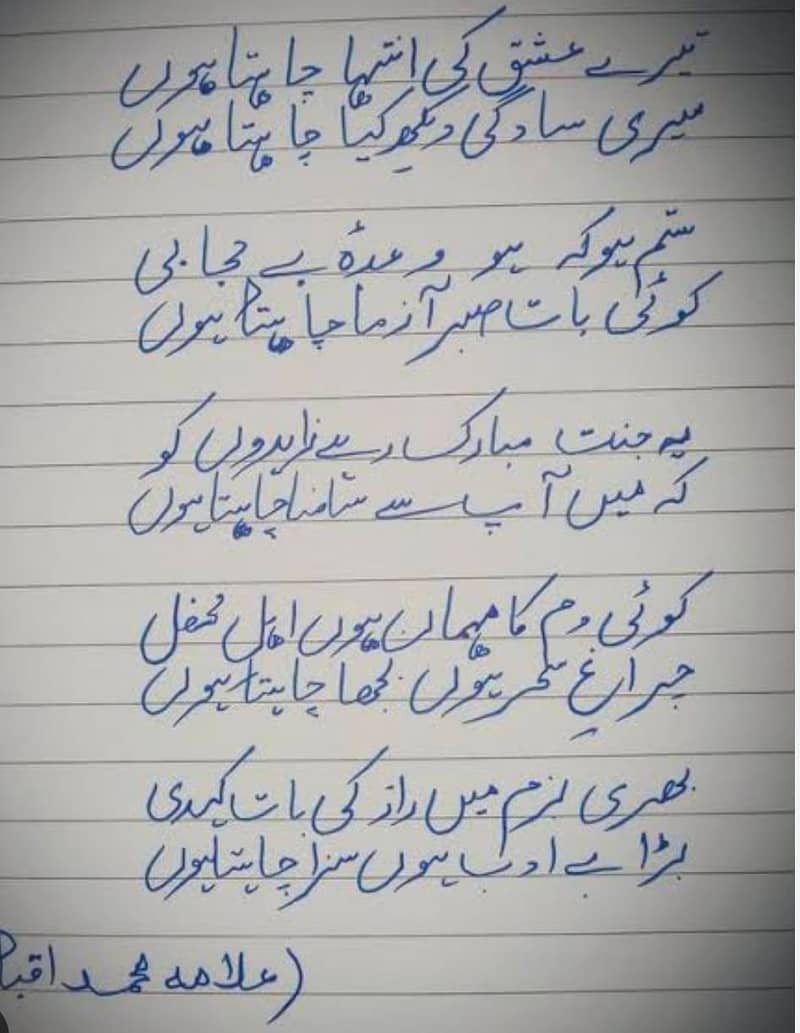 تیرے عشق کی انتہا چاہتا ہوں
میری سادگی دیکھ کیا چاہتا ہوں
ستم ہو کہ ہو وعدۂ بے حجابی
کوئی بات صبر آزما چاہتا ہوں
یہ جنت مبارک رہے زاہدوں کو
کہ میں آپ سے سامنا چاہتا ہوں
کوئی دم کا مہماں ہوں اہل محفل
چراغِ سحر ہوں بجھا چاہتا ہوں
بھری بزم میں راز کی بات کہدی
بڑا بے ادب ہوں سزا چاہتا ہوں
(علامہ محمد اقبا